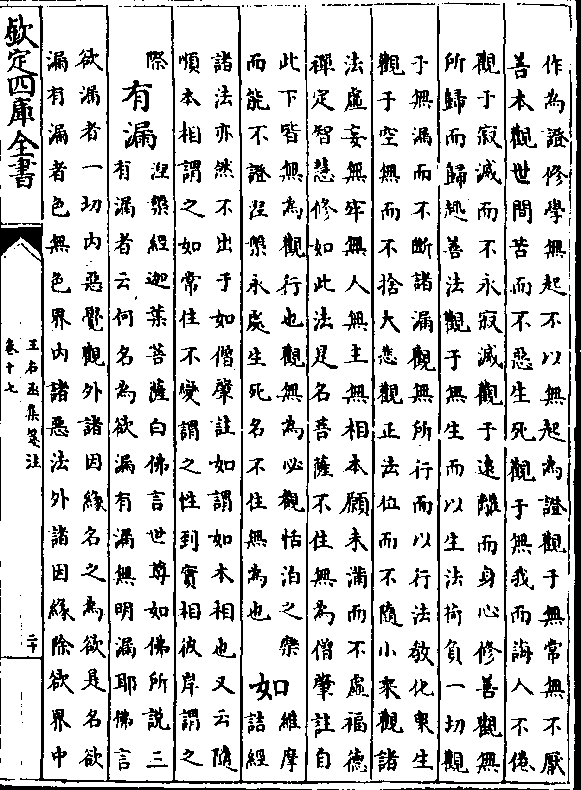 作為證修學無起不以無起為證觀于無常無不厭
善本觀世間苦而不惡生死觀于無我而誨人不倦
觀于寂滅而不永寂滅觀于遠離而身心修善觀無
所歸而歸趣善法觀于無生而以生法荷負一切觀
于無漏而不斷諸漏觀無所行而以行法教化衆生
觀于空無而不捨大悲觀正法位而不隨小乘觀諸
法虛妄無牢無人無主無相本願未滿而不虛福德
禪定智慧修如此法是名菩薩不住無為僧肇註自
此下皆無為觀行也觀無為必觀恬泊之樂
而能不證涅槃永處生死名不住無為也
如
維摩
詰經
諸法亦然不出于如僧肇註如謂如本相也又云隨
順本相謂之如常住不變謂之性到實相彼岸謂之
際
有漏
涅槃經迦葉菩薩白佛言世尊如佛所說三
有漏者云何名為欲漏有漏無明漏耶佛言
欲漏者一切內惡覺觀外諸因緣名之為欲是名欲
漏有漏者色無色界內諸惡法外諸因緣除欲界中
欽定四庫全書
王右丞集箋注
卷十七
二十